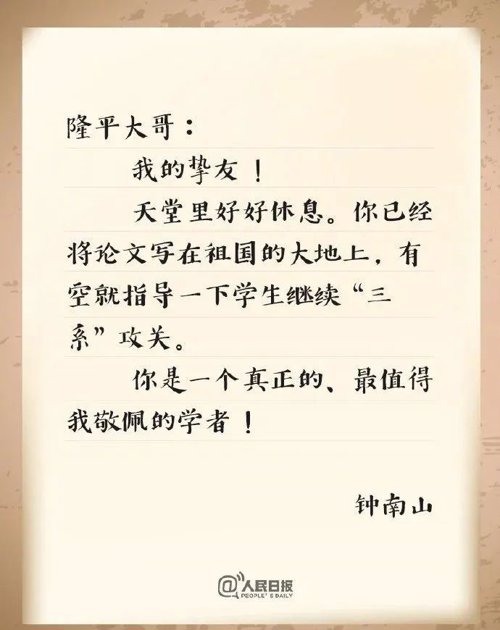 隆平大哥：
我的挚友！
天堂里好好休息。你已经
将论文写在祖国的大地上，有
空就指导一下学生继续“三
系”攻关。
你是一个真正的、最值得
我敬佩的学者！
钟南山
@人民日报
PEOPLE'S DAILY